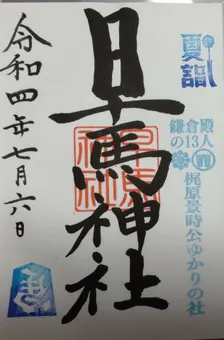 夏詣
鎌倉殿の13人 四
梶原景時公ゆかりの社
日早馬神社
令和四年七月六日